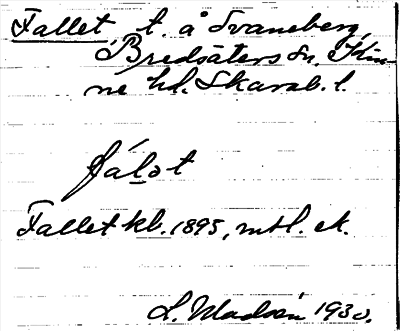 Fallet, t. å Svaneberg,
Bredsäters sn, Kin-
ne hd. Skarab. l.
fálət
Fallet kb. 1895, mtl. ek.
L. Madsén 1930.